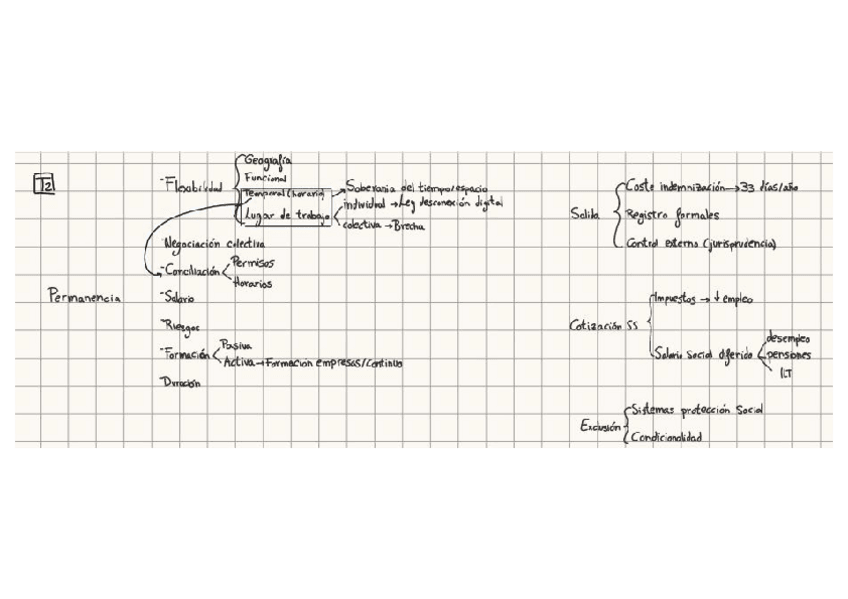 T2
Permanencia
-Flexibilidad
Geografía
Funcional
Temporal (horario)
Lugar de trabajo
Soberanía del tiempo/espacio
individual → Ley desconexión digital
colectiva → Brecha
Negociación colectiva
-Conciliación
Permisos
Horarios
-Salario
-Riesgos
-Formación
Pasiva
Activa → Formacion empresas/Continua
-Duración
Salida
Coste indemnización → 33 días/año
Registro formales
Control externo (jurisprudencia)
Cotización SS
Impuestos → ↓ empleo
Salario Social diferido
desempleo
pensiones
ILT
Exclusión
Sistemas protección Social
Condicionalidad